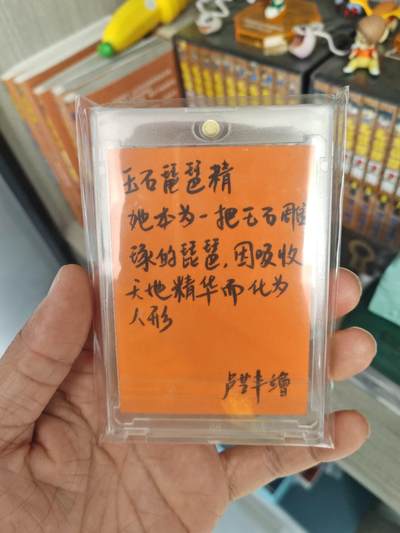 玉石琵琶精
她本为一把玉石雕
琢的琵琶，因吸收
天地精华而化为
人形
卢丰繪